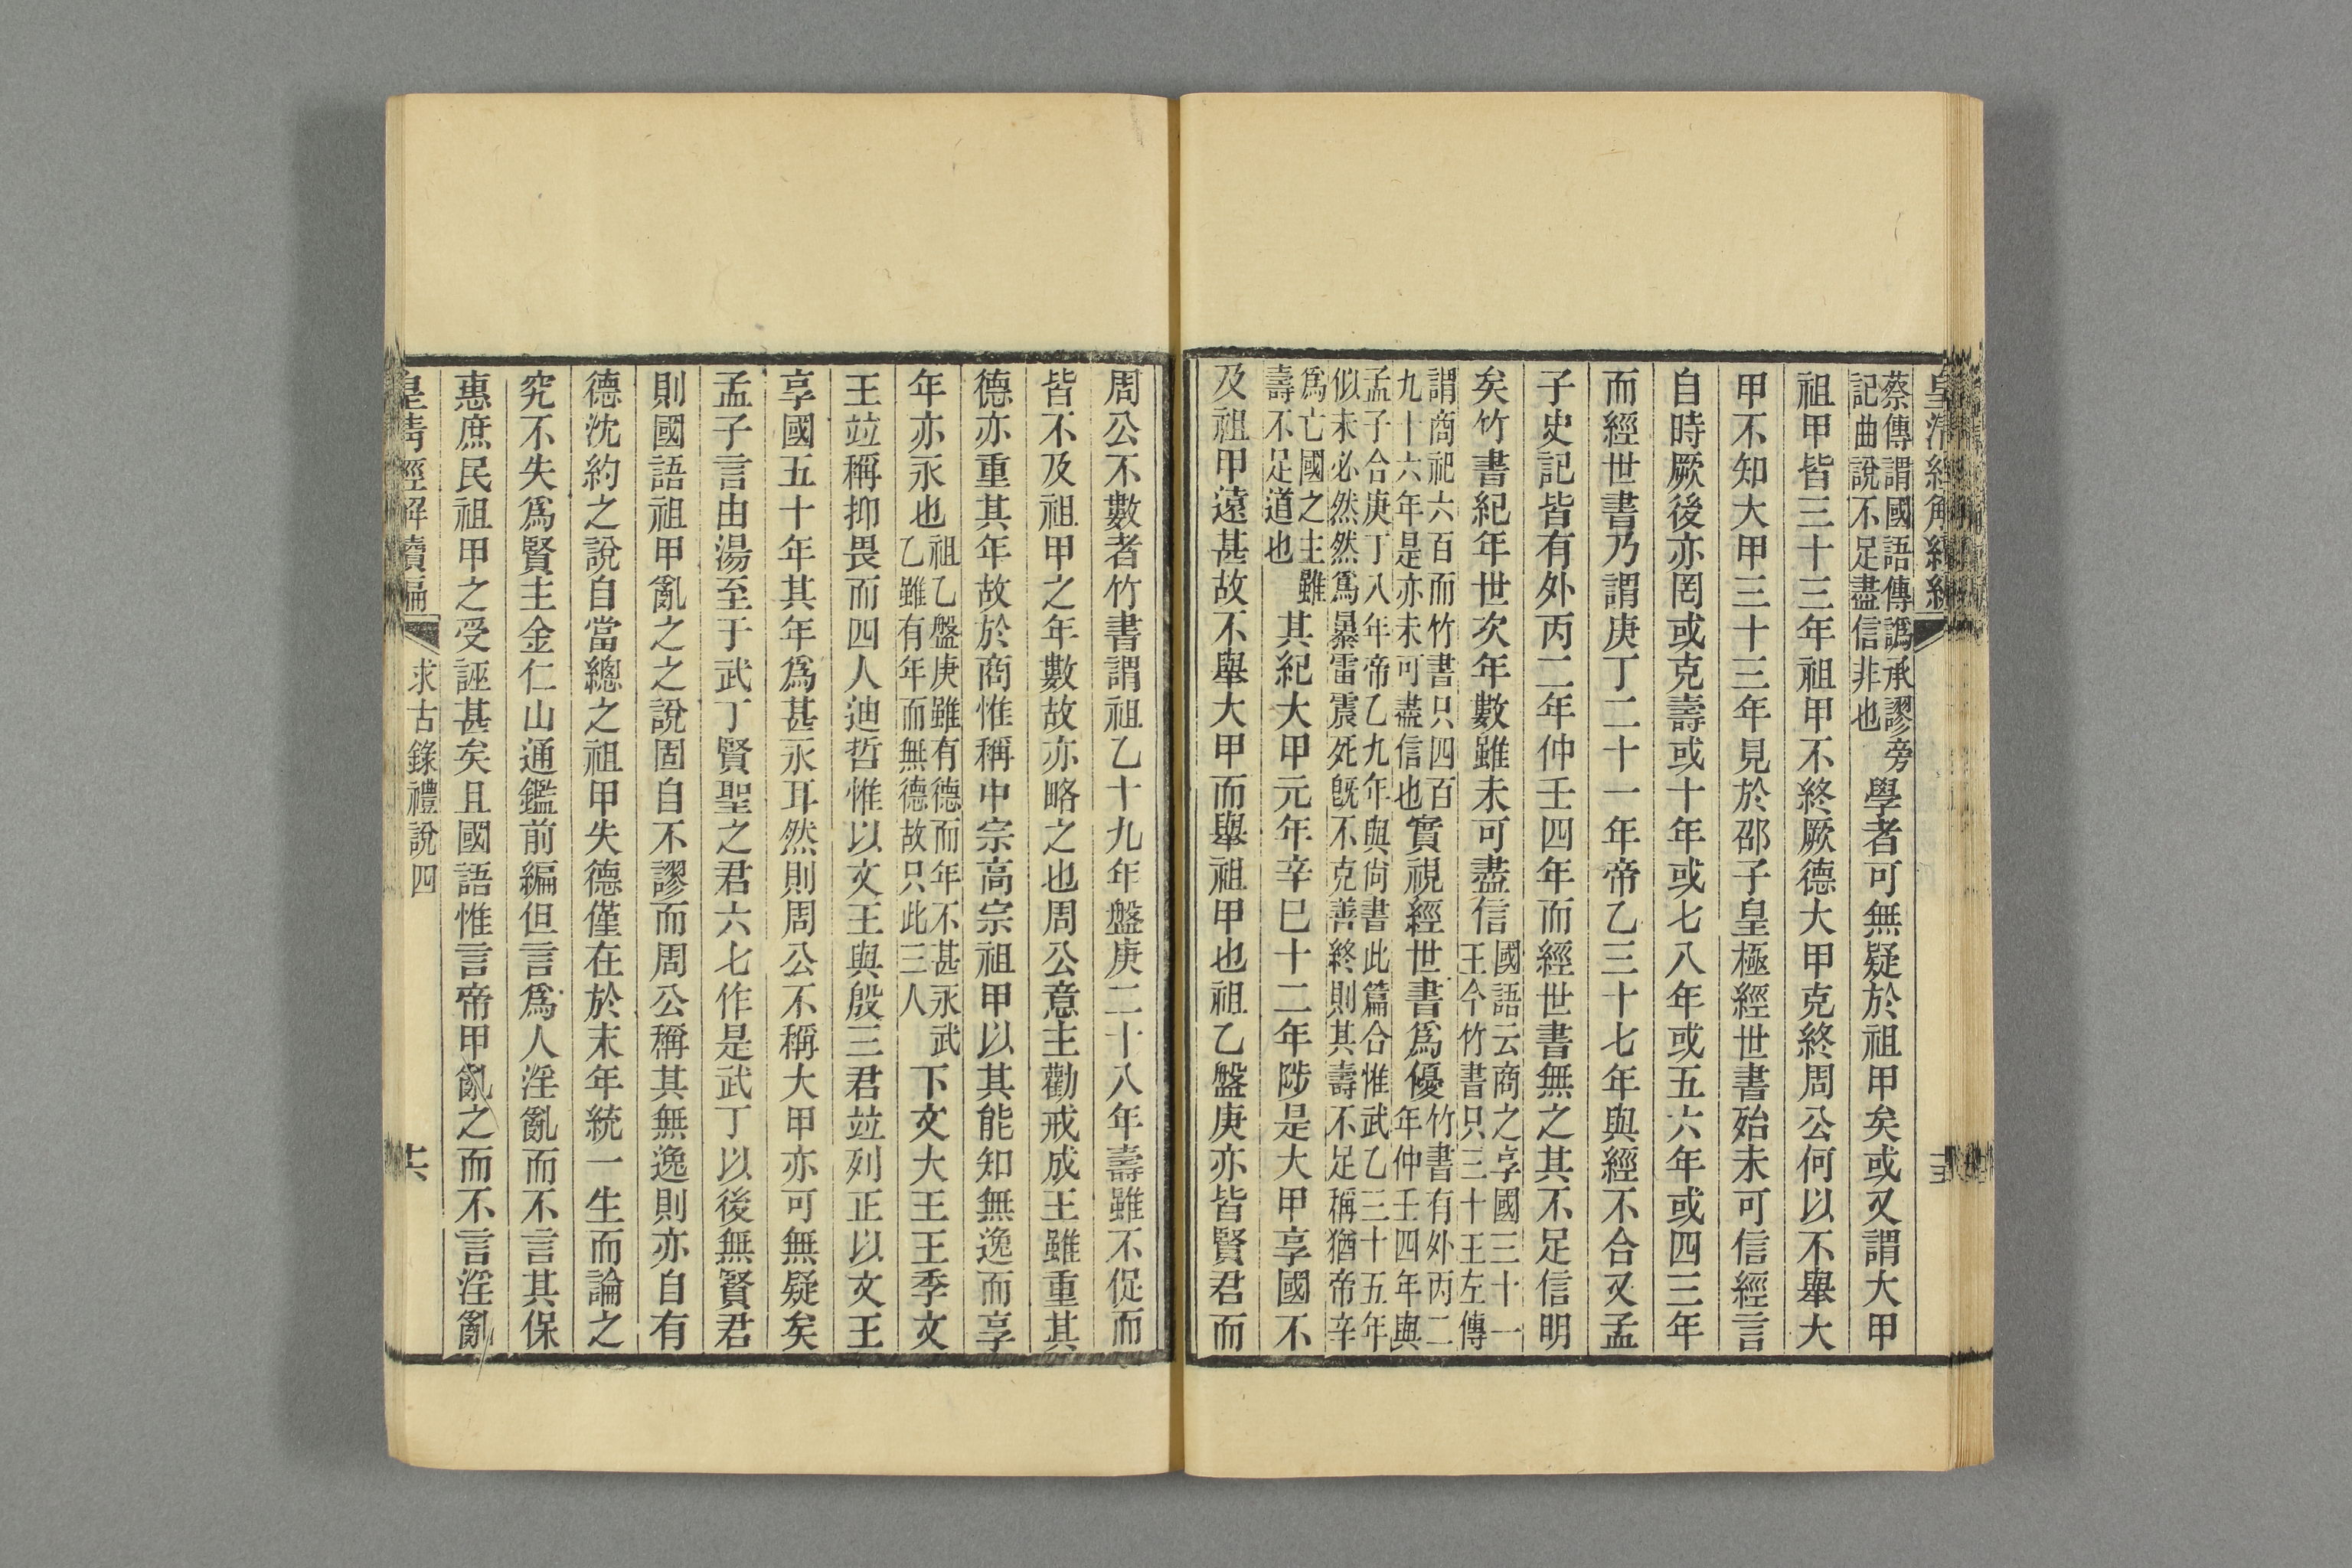 蔡傳謂國語傳譌承謬旁
記曲說不足盡信非也
學者可無疑於祖甲矣或又謂大甲
祖甲皆三十三年祖甲不終厥德大甲克終周公何以不舉大
甲不知大甲三十三年見於邵子皇極經世書殆未可信經言
自時厥後亦罔或克壽或十年或七八年或五六年或四三年
而經世書乃謂庚丁二十一年帝乙三十七年與經不合又孟
子史記皆有外丙二年仲壬四年而經世書無之其不足信明
矣竹書紀年世次年數雖未可盡信
國語云商之享國三十一
王今竹書只三十王左傳
謂商祀六百而竹書只四百
九十六年是亦未可盡信也
實視經世書爲優
竹書有外丙二
年仲壬四年與
孟子合庚丁八年帝乙九年與尙書此篇合惟武乙三十五年
似未必然然爲暴雷震死旣不克善終則其壽不足稱猶帝辛
爲亡國之主雖
壽不足道也
其紀大甲元年辛巳十二年陟是大甲享國不
及祖甲遠甚故不舉大甲而舉祖甲也祖乙盤庚亦皆賢君而
周公不數者竹書謂祖乙十九年盤庚二十八年壽雖不促而
皆不及祖甲之年數故亦略之也周公意主勸戒成王雖重其
德亦重其年故於商惟稱中宗高宗祖甲以其能知無逸而享
年亦永也
祖乙盤庚雖有德而年不甚永武
乙雖有年而無德故只此三人
下文大王王季文
王竝稱抑畏而四人迪哲惟以文王與殷三君竝列正以文王
享國五十年其年爲甚永耳然則周公不稱大甲亦可無疑矣
孟子言由湯至于武丁賢聖之君六七作是武丁以後無賢君
則國語祖甲亂之之說固自不謬而周公稱其無逸則亦自有
德沈約之說自當總之祖甲失德僅在於末年統一生而論之
究不失爲賢主金仁山通鑑前編但言爲人淫亂而不言其保
惠庶民祖甲之受誣甚矣且國語惟言帝甲亂之而不言淫亂
皇淸經解續編
求古錄禮說四
十六